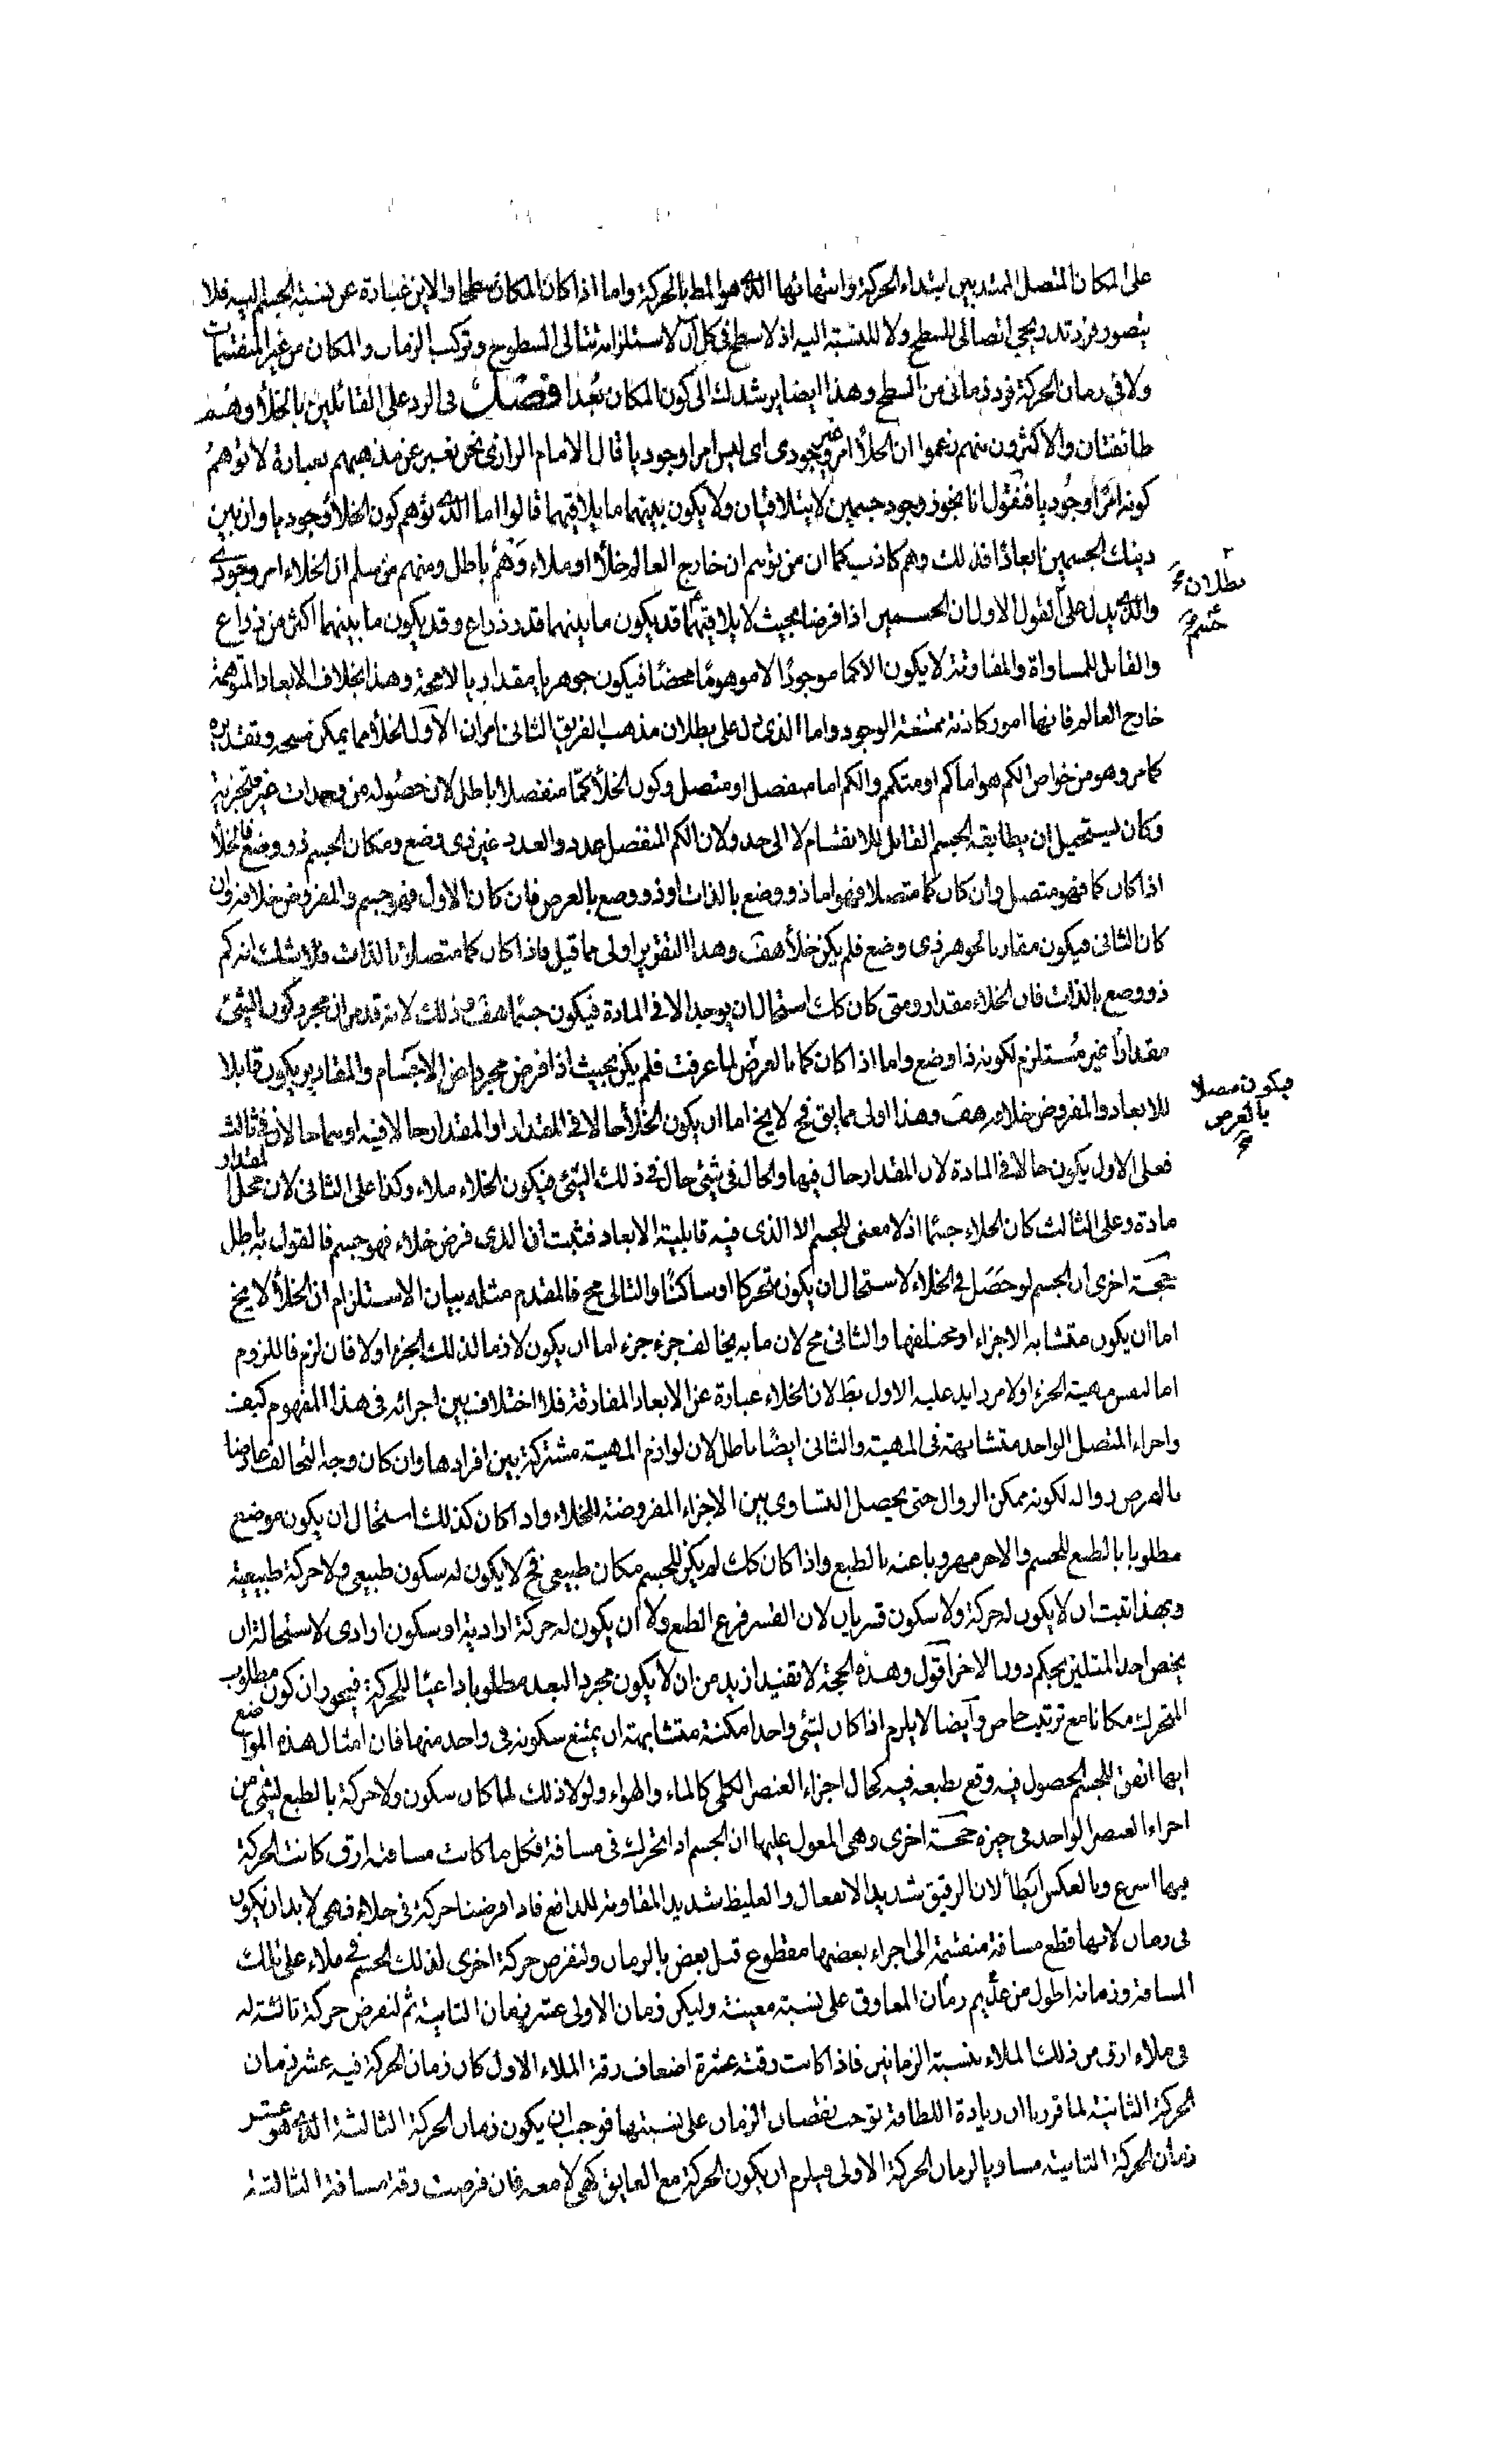 على المكان المتصل الممتد بين ابتداء الحركة وانتهائها الذي هو المط بالحركة واما اذا كان المكان سطحا والاين عبارة عن نسبة الجسم اليه فلا
يتصور فرد تدريجي اتصالي للسطح ولا للنسبة اليه اذ لا سطح في كل آن لاستلزامه تتالى السطوح وتركب الزمان والمكان من غير المنقسمات
ولا في زمان الحركة فرد زماني من السطح وهذا ايضا يرشدك الى كون المكان بعدا فصل في الرد على القائلين بالخلأ وهم
طائفتان والاكثرون منهم زعموا ان الخلأ امر غير وجودي اى ليس امرا وجوديا قال الامام الرازي نحن نعبر عن مذهبهم بعبارة لا توهم
كونه امرا وجوديا فنقول انا نجوز وجود جسمين لا يتلاقيان ولا يكون بينهما ما يلاقيهما قالوا اما الذي توهم كون الخلأ وجوديا وان بين
دينك الجسمين ابعادا فذلك وهم كاذب كما ان من توهم ان خارج العالم خلأ او ملاء وهم باطل ومنهم من سلم ان الخلاء امر وجودي
والذي يدل على القول الاول ان الجسمين اذا فرضا بحيث لا يلاقيهما قد يكون ما بينهما قدر ذراع وقد يكون ما بينهما اكثر من ذراع
والقابل للمساواة والمفاوتة لا يكون الا كما موجودا لا موهوما محضا فيكون جوهريا مقداريا لا محة وهذا بخلاف الابعاد المتوهمة
خارج العالم فانها امور كاذبة ممتنعة الوجود واما الذي يدل على بطلان مذهب الفريق الثاني امران الاول الخلأ مما يمكن مسحه وتقديره
كما مر وهو من خواص الكم هو اما كم او متكمم والكم اما منفصل او متصل وكون الخلأ كما منفصلا باطل لان حصوله من وحدات غير متجزية
وكان يستحيل ان يطابقه الجسم القابل للانقسام لا الى حد ولان الكم المنفصل عدد والعدد غير ذى وضع ومكان الجسم ذو وضع فالخلأ
اذا كان كما فهو متصل وان كان كما متصلا فهو اما ذو وضع بالذات او ذو وضع بالعرض فان كان الاول فهو جسم والمفروض خلافه وان
كان الثاني فيكون مقارنا لجوهر ذى وضع فلم يكن خلأ هف وهذا التقرير اولى مما قيل فاذا كان كما متصلا بالذات فلا يشك انه كم
ذو وضع بالذات فان الخلاء مقدار ومتى كان كك استحال ان يوجد الا في المادة فيكون جسما هف وذلك لانه قد مر ان مجرد كون الشئ
مقدارا غير مستلزم لكونه ذا وضع واما اذا كان كما بالعرض لما عرفت فلم يكن بحيث اذا فرض مجردا عن الاجسام والمقادير يكون قابلا
للابعاد والمفروض خلافه هف وهذا اولى مما بق فح لا يخ اما ان يكون الخلأ حالا في المقدار او المقدار حالا فيه او هما حالان في ثالث
فعلى الاول يكون حالا في المادة لان المقدار حال فيها والحال في شئ حال في ذلك الشئ فيكون الخلاء ملاء وكذا على الثاني لان محل المقدار
مادة وعلى الثالث كان الخلاء جسما اذ لا معنى للجسم الا الذي فيه قابلية الابعاد فثبت ان الذي فرض خلاء فهو جسم فالقول به باطل
حجة اخرى ان الجسم لو حصل في الخلاء لاستحال ان يكون متحركا او ساكنا والتالى مح فالمقدم مثله بيان الاستلزام ان الخلأ لا يخ
اما ان يكون متشابه الاجزاء او مختلفها والثاني مح لان ما به يخالف جزء جزء اما ان يكون لازما لذلك الجزء او لا فان لزم فاللزوم
اما لنفس مهية الجزء او لامر زايد عليه الاول بط لان الخلاء عبارة عن الابعاد المفارقة فلا اختلاف بين اجزائه في هذا المفهوم كيف
واجزاء المتصل الواحد متشابهة في المهية والثاني ايضا باطل لان لوازم المهية مشتركة بين افرادها وان كان وجه التخالف عارضا
فليفرض زواله لكونه ممكن الزوال حتى يحصل التساوى بين الاجزاء المفروضة للخلاء واذا كان كذلك استحال ان يكون موضع
مطلوبا بالطبع للجسم والاخر مهروبا عنه بالطبع واذا كان كك لم يكن للجسم مكان طبيعي فح لا يكون له سكون طبيعي ولا حركة طبيعية
وبهذا ثبت ان لا يكون له حركة ولا سكون قسريان لان القسر فرع الطبع ولا ان يكون له حركة ارادية او سكون ارادى لاستحالة ان
يختص احد المثلين بحكم دون الاخر اقول وهذه الحجة لا تفيد ازيد من ان لا يكون مجرد البعد مطلوبا داعيا للحركة فيجوز ان يكون مطلوب
المتحرك مكانا مع ترتيب خاص وايضا لا يلزم اذا كان لشئ واحد امكنة متشابهة ان يمتنع سكونه في واحد منها فان امثال هذه المواضع
ايها اتفق للجسم الحصول فيه وقع بطبعه فيه كحال اجزاء العنصر الكلى كالماء والهواء ولولا ذلك لما كان سكون ولا حركة بالطبع لشئ من
اجزاء العنصر الواحد في حيزه حجة اخرى وهى المعول عليها ان الجسم اذا تحرك في مسافة فكل ما كانت مسافته ارق كانت الحركة
فيها اسرع وبالعكس ابطأ لان الرقيق شديد الانفعال والغليظ شديد المقاومة للدافع فاذا فرضنا حركة في خلاء فهى لا بد ان يكون
في زمان لانها قطع مسافة منقسمة الى اجزاء بعضها مقطوع قبل بعض بالزمان ولنفرض حركة اخرى لذلك الجسم في ملاء على تلك
المسافة وزمانه اطول من زمان عديم المعاوق على نسبة معينة وليكن زمان الاولى عشر زمان الثانية ثم لنفرض حركة ثالثة له
في ملاء ارق من ذلك الملاء بنسبة الزمانين فاذا كانت رقته عشرة اضعاف رقة الملاء الاول كان زمان الحركة فيه عشر زمان
الحركة الثانية لما قررنا ان زيادة اللطافة توجب نقصان الزمان على نسبتها فوجب ان يكون زمان الحركة الثالثة الذي هو عشر
زمان الحركة الثانية مساويا لزمان الحركة الاولى فيلزم ان يكون الحركة مع العايق كهى لا معه فان فرضت رقة مسافة الثالثة
بطلان
فيكون متصلا
بالعرض